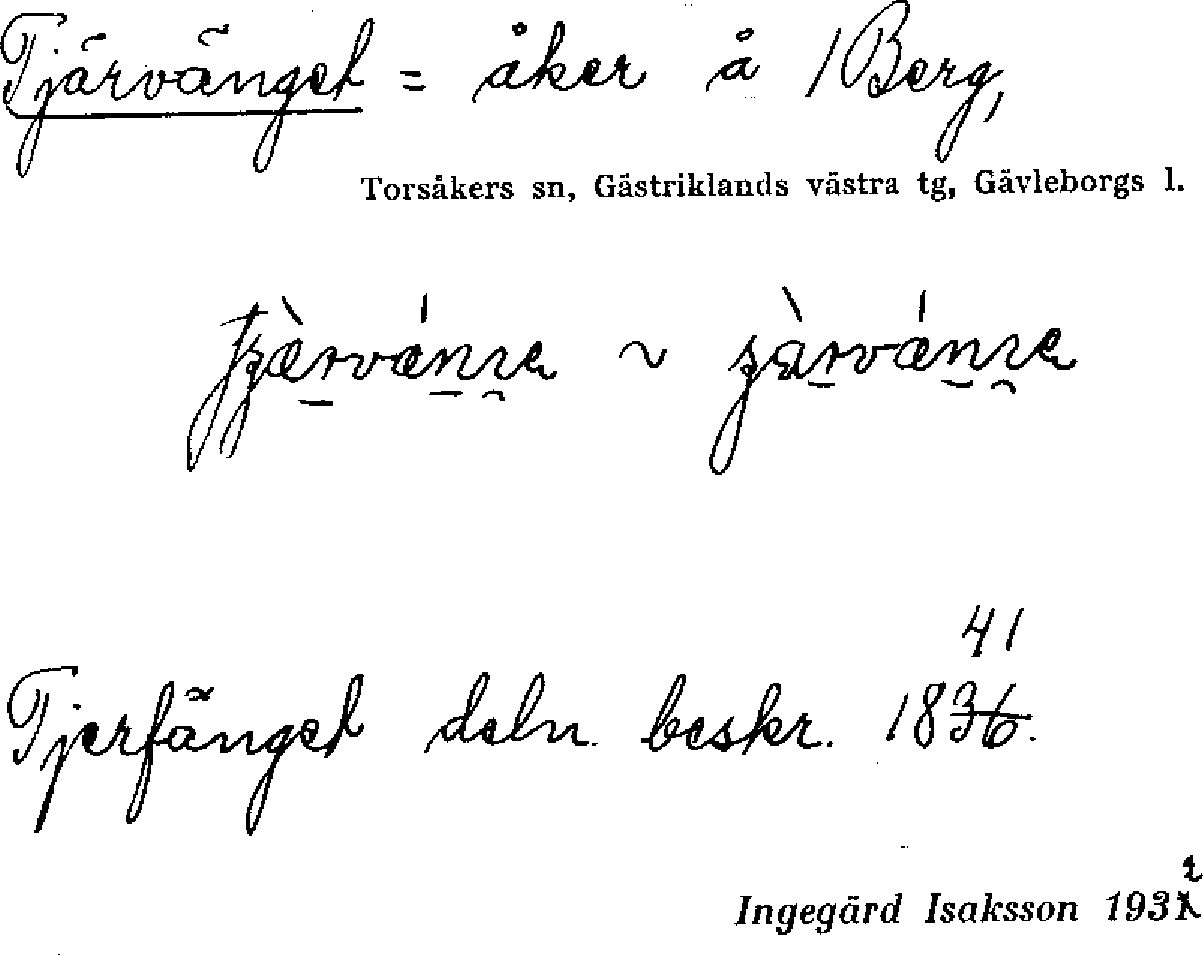 Tjärvänget = åker å 1 Berg,
Torsåkers sn, Gästriklands västra tg, Gävleborgs l.
~
41
Tjerfänget deln. beskr. 1836.
Ingegärd Isaksson 193